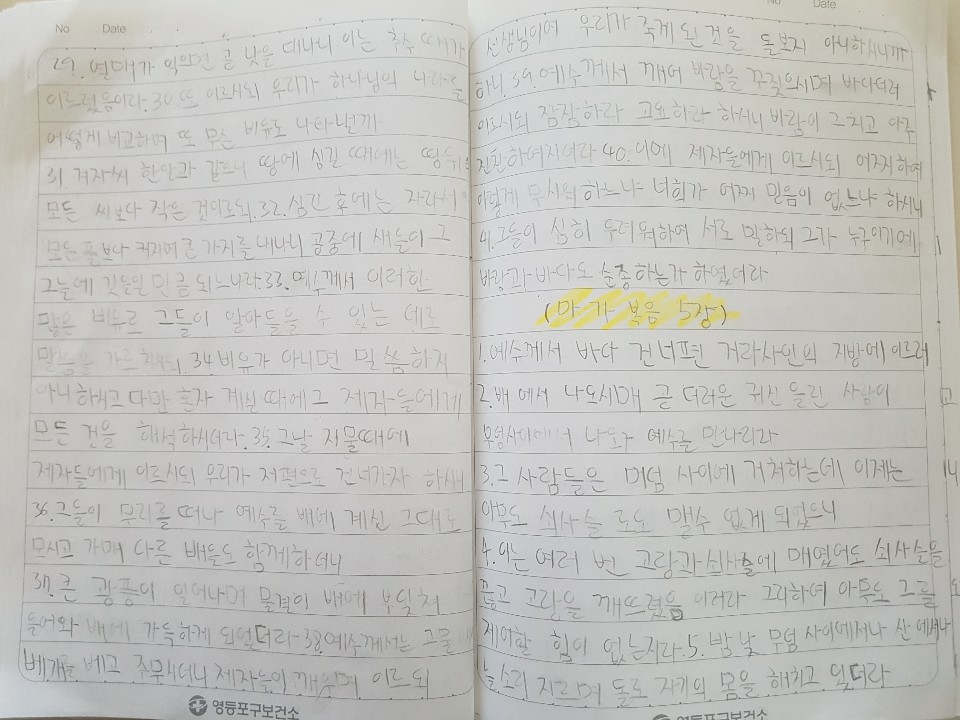 No Date
29. 열매가 익으면 곧 낫을 대나니 이는 추수 때가
이르렀음이라. 30 또 이르시되 우리가 하나님의 나라를
어떻게 비교하며 또 무슨 비유로 나타낼까
31. 겨자씨 한알과 같으니 땅에 심길 때에는 땅위
모든 씨보다 작은 것이로되. 32. 심긴 후에는 자라서
모든 풀보다 커지며 큰 가지를 내나니 공중에 새들이 그
그늘에 깃들일 만큼 되느니라. 33. 예수께서 이러한
많은 비유로 그들이 알아들을 수 있는 데로
말씀을 가르치시되. 34 비유가 아니면 말씀하지
아니하시고 다만 혼자 계실 때에 그 제자들에게
모든 것을 해석하시더라. 35. 그날 저물때에
제자들에게 이르시되 우리가 저편으로 건너가자 하시니
36. 그들이 무리를 떠나 예수를 배에 계신 그대로
모시고 가매 다른 배들도 함께하더니
37. 큰 광풍이 일어나며 물결이 배에 부딪쳐
들어와 배에 가득하게 되었더라. 38. 예수께서는 고물
베개를 베고 주무시더니 제자들이 깨우며 이르되
영등포구보건소
No Date
선생님이여 우리가 죽게 된 것을 돌보지 아니하시니까
하니 39. 예수께서 깨어 바람을 꾸짖으시며 바다더러
이르시되 잠잠하라 고요하라 하시니 바람이 그치고 아주
잔잔하여지더라 40. 이에 제자들에게 이르시되 어찌하여
이렇게 무서워하느냐 너희가 어찌 믿음이 없느냐 하시니
41. 그들이 심히 두려워하여 서로 말하되 그가 누구이기에
바람과 바다도 순종하는가 하였더라
(마가 복음 5장)
1. 예수께서 바다 건너편 거라사인의 지방에 이르러
2. 배에서 나오시매 곧 더러운 귀신 들린 사람이
무덤사이에서 나와 예수를 만나리라
3. 그 사람들은 무덤 사이에 거처하는데 이제는
아무도 쇠사슬 로도 맬수 없게 되었으니
4. 이는 여러 번 고랑과 쇠사슬에 매였어도 쇠사슬을
끊고 고랑을 깨뜨렸음 이러라 그리하여 아무도 그를
제어할 힘이 없는지라. 5. 밤 낮 무덤 사이에서나 산 에서나
늘 소리 지르며 돌로 자기의 몸을 해치고 있더라
영등포구보건소